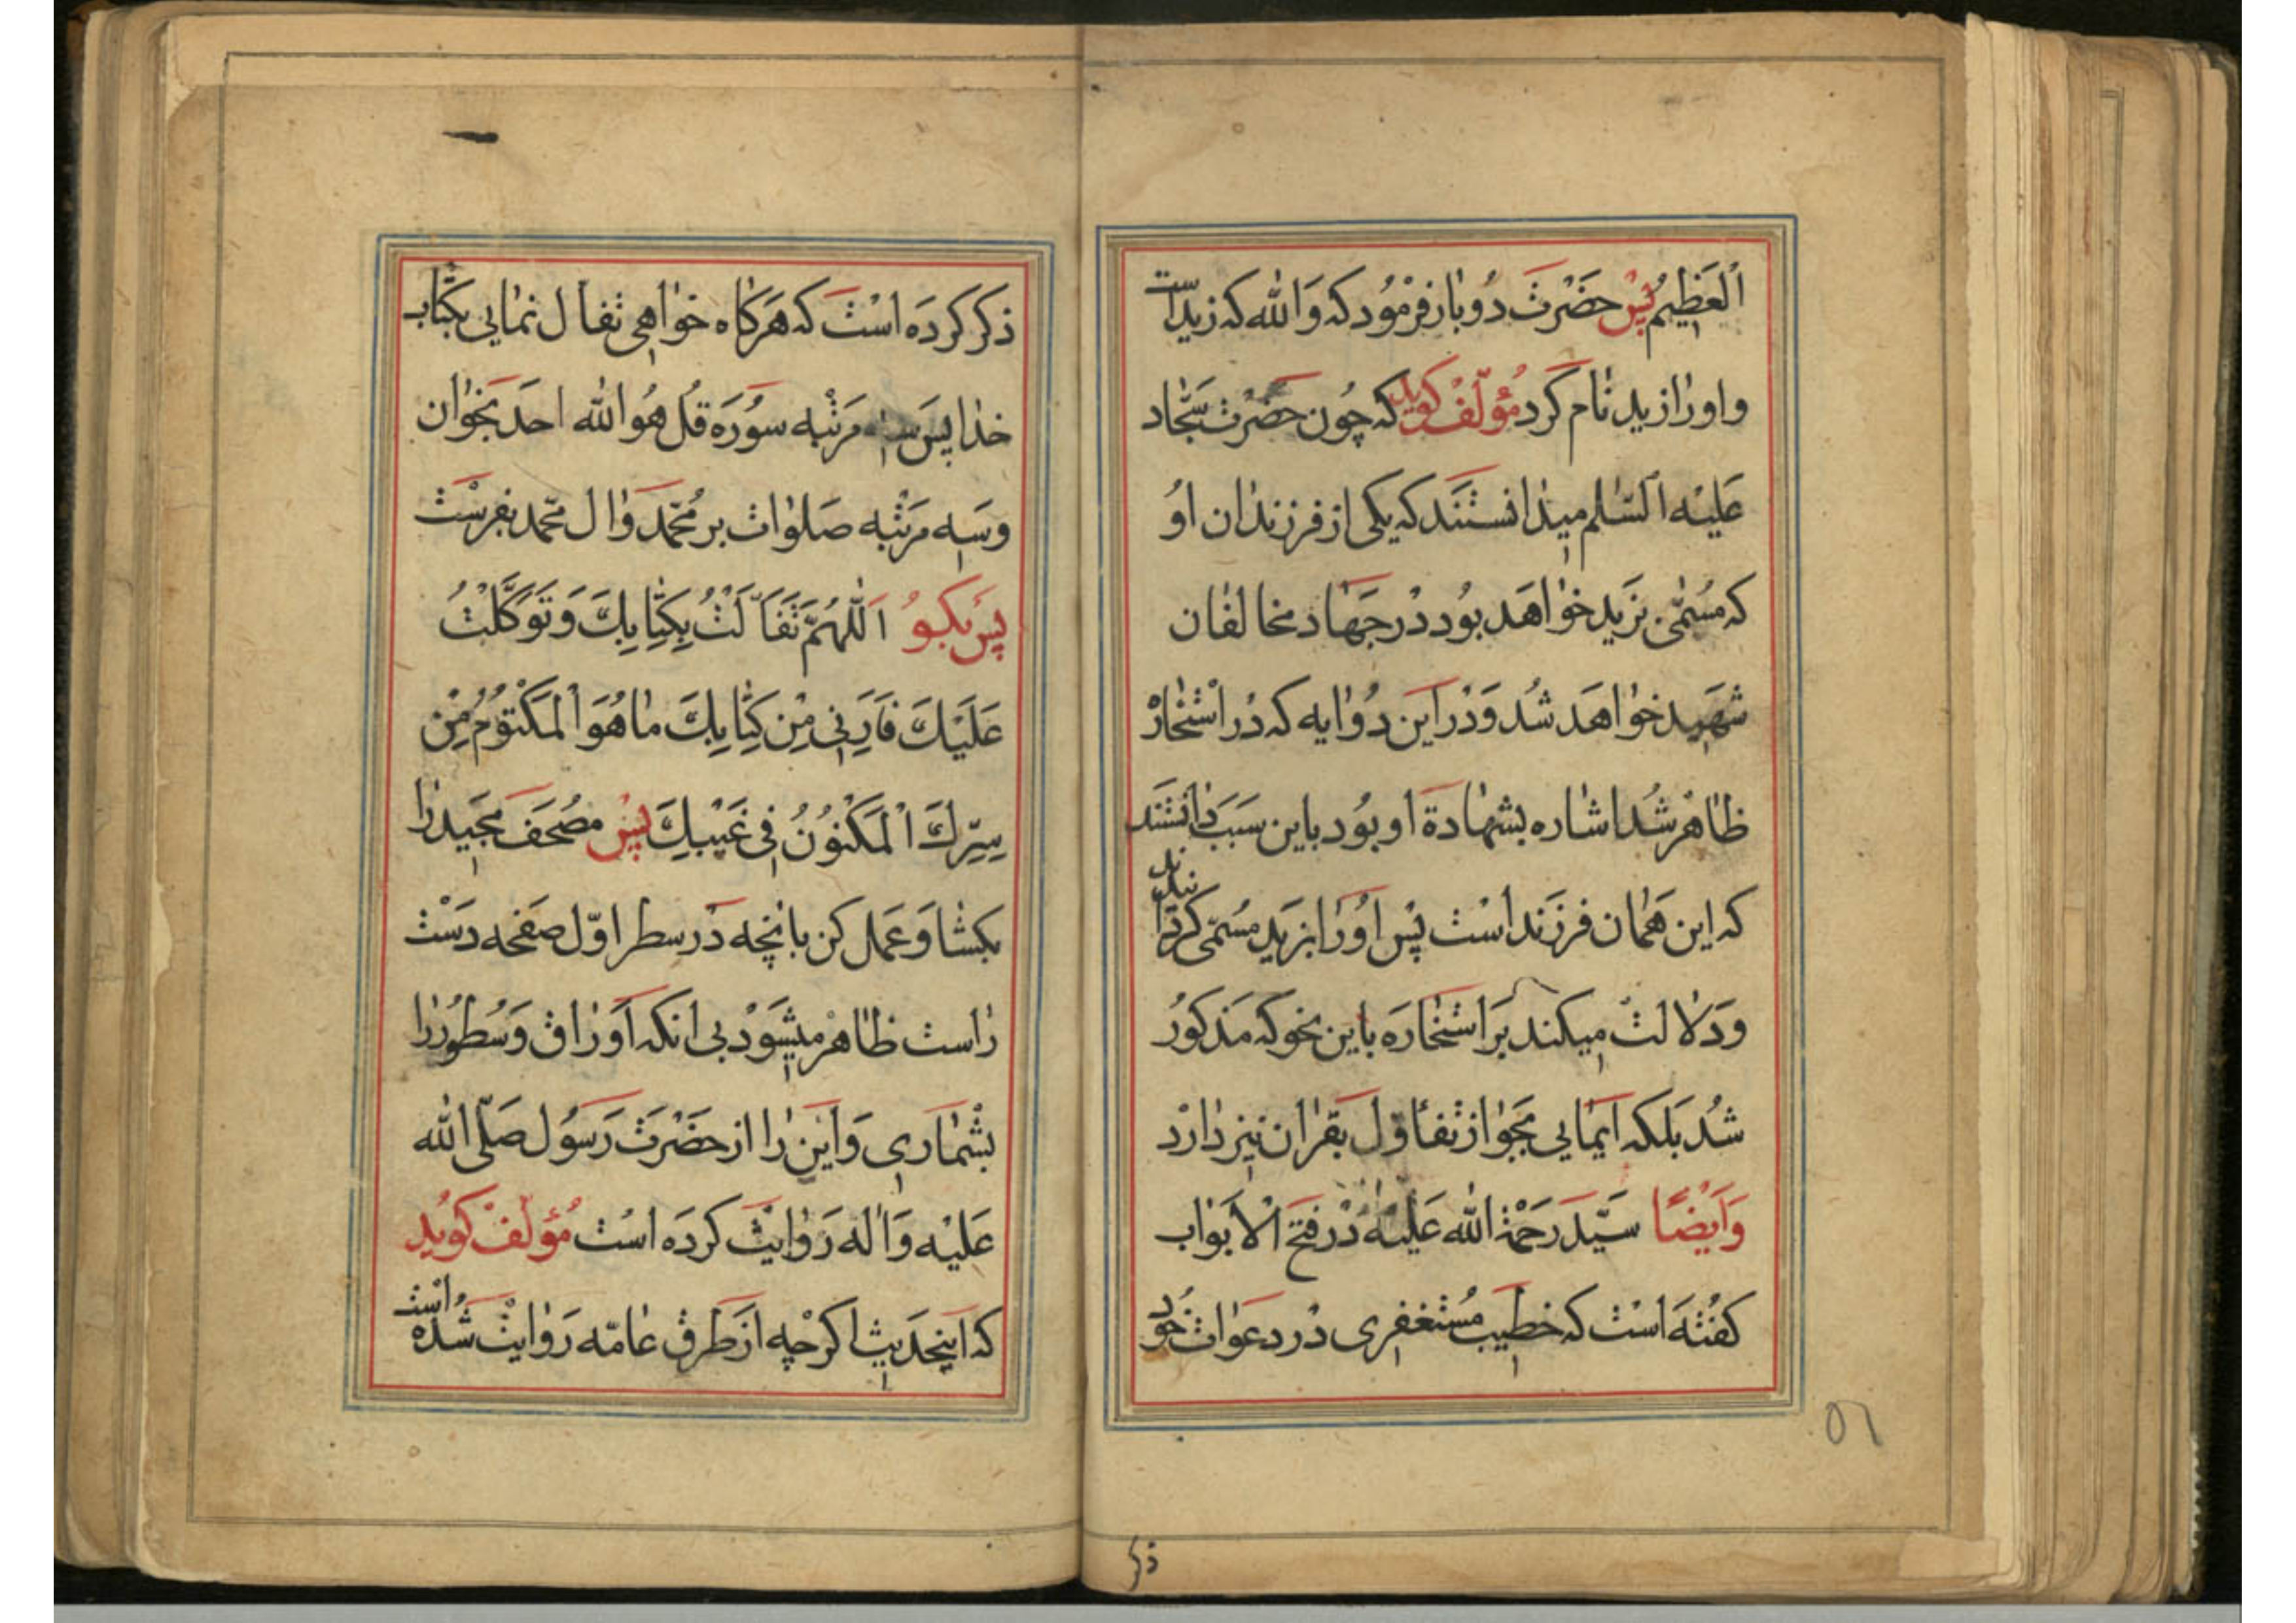 اَلْعَظِیمُ پس حَضْرَت دُوبار فرمُود که وَالله که زید است
و او را زید نام کرد مُؤلّف کوید که چُون حضرت سَجّاد
عَلیْه السّلم میدانستند که یکی از فرزندان اوُ
که مُسمّی بزید خواهد بُود در جهاد مخالفان
شهید خواهد شُد وَ در این دُو ایه که در استخاره
ظاهر شُد اشاره بشهادة او بُود باین سبب دانستند
که این همان فرزند است پس اوُ را بزید مُسمّی کردند
وَ دلالت میکند بر استخاره باین نحو که مذکوُر
شُد بلکه ایمایی بجواز تفاؤل بقران نیز دارد
وَاَیضًا سیّد رَحْمَة الله عَلیْه در فتح الاَبواب
کفته است که خطیب مُستغفری در دعوات خوُد
ذکر
۵۱
ذکر کرده است که هرکاه خواهی تفأل نمایی بکتاب
خدا پس سه مرتبه سوُره قُل هُو الله احد بخوان
و سه مرتبه صَلوات بر مُحمّد وَ ال محمّد بفرست
پس بکوُ اَللّهُمَّ تَفَأَّلْتُ بِکِتابِكَ وَ تَوَکَّلْتُ
عَلَیْكَ فَاَرِنی مِنْ کِتابِكَ ما هُوَ الْمَکْتوُمُ مِنْ
سِرِّكَ الْمَکْنوُنُ فی غَیْبِكَ پس مُصْحَف مجید را
بکشا وَ عمل کن بانچه در سطر اوّل صفحه دست
راست ظاهر میشود بی انکه اَوراق وَ سُطوُر را
بشماری وَ این را از حضرت رسوُل صَلّی الله
عَلیْه وَ اله روایت کرده است مُؤلّف کوید
که اینحدیث اکرچه از طرق عامّه روایت شده است